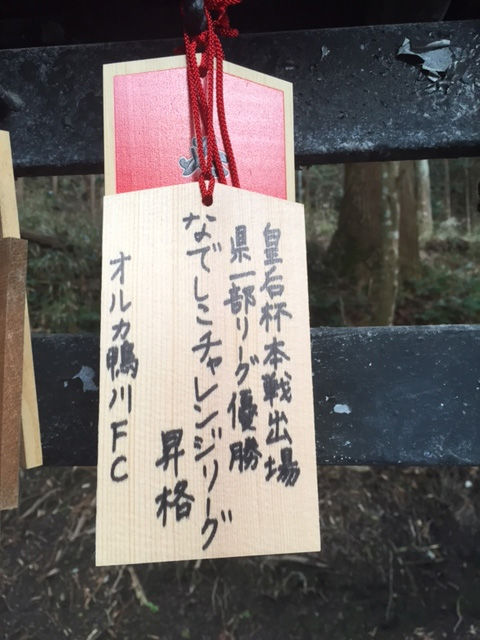 皇后杯本戦出場
県一部リーグ優勝
なでしこチャレンジリーグ
昇格
オルカ鴨川FC